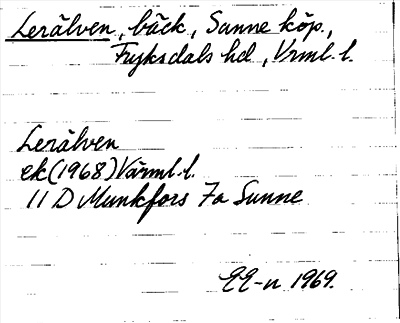 Lerälven, bäck, Sunne köp.,
Fryksdals hd., Vrml. l.
Lerälven
ek(1968) Värml. l.
11 D Munkfors 7a Sunne
1969.